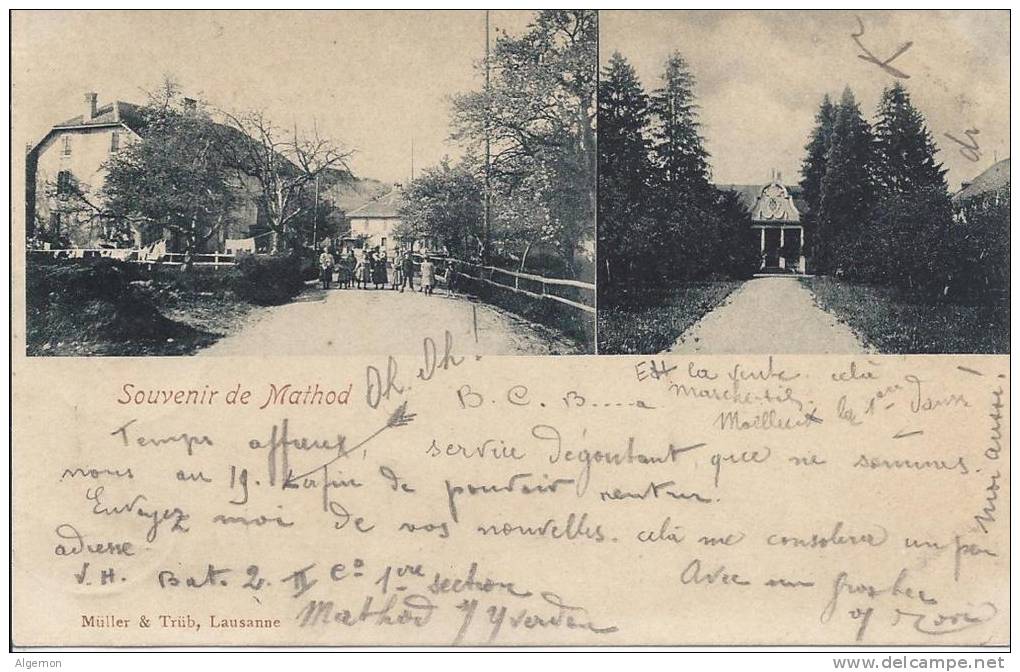 K
Souvenir de Mathod
Oh. Oh!
B. C. B....a
Est la vente. celà
Marche-t-il
Moëlleux la 1ère Danse!
Temps affreux, service dégoutant, que ne sommes
nous au 19. Enfin de pouvoir rentrer.
Envoyez moi de vos nouvelles. celà me consolera un peu
moi aussi.
adresse
V. H. Bat. 2. II Co 1ère section
Mathod s/ Yverdon
Avec un gros bec
Müller & Trüb, Lausanne
Algemon
www.delcampe.net